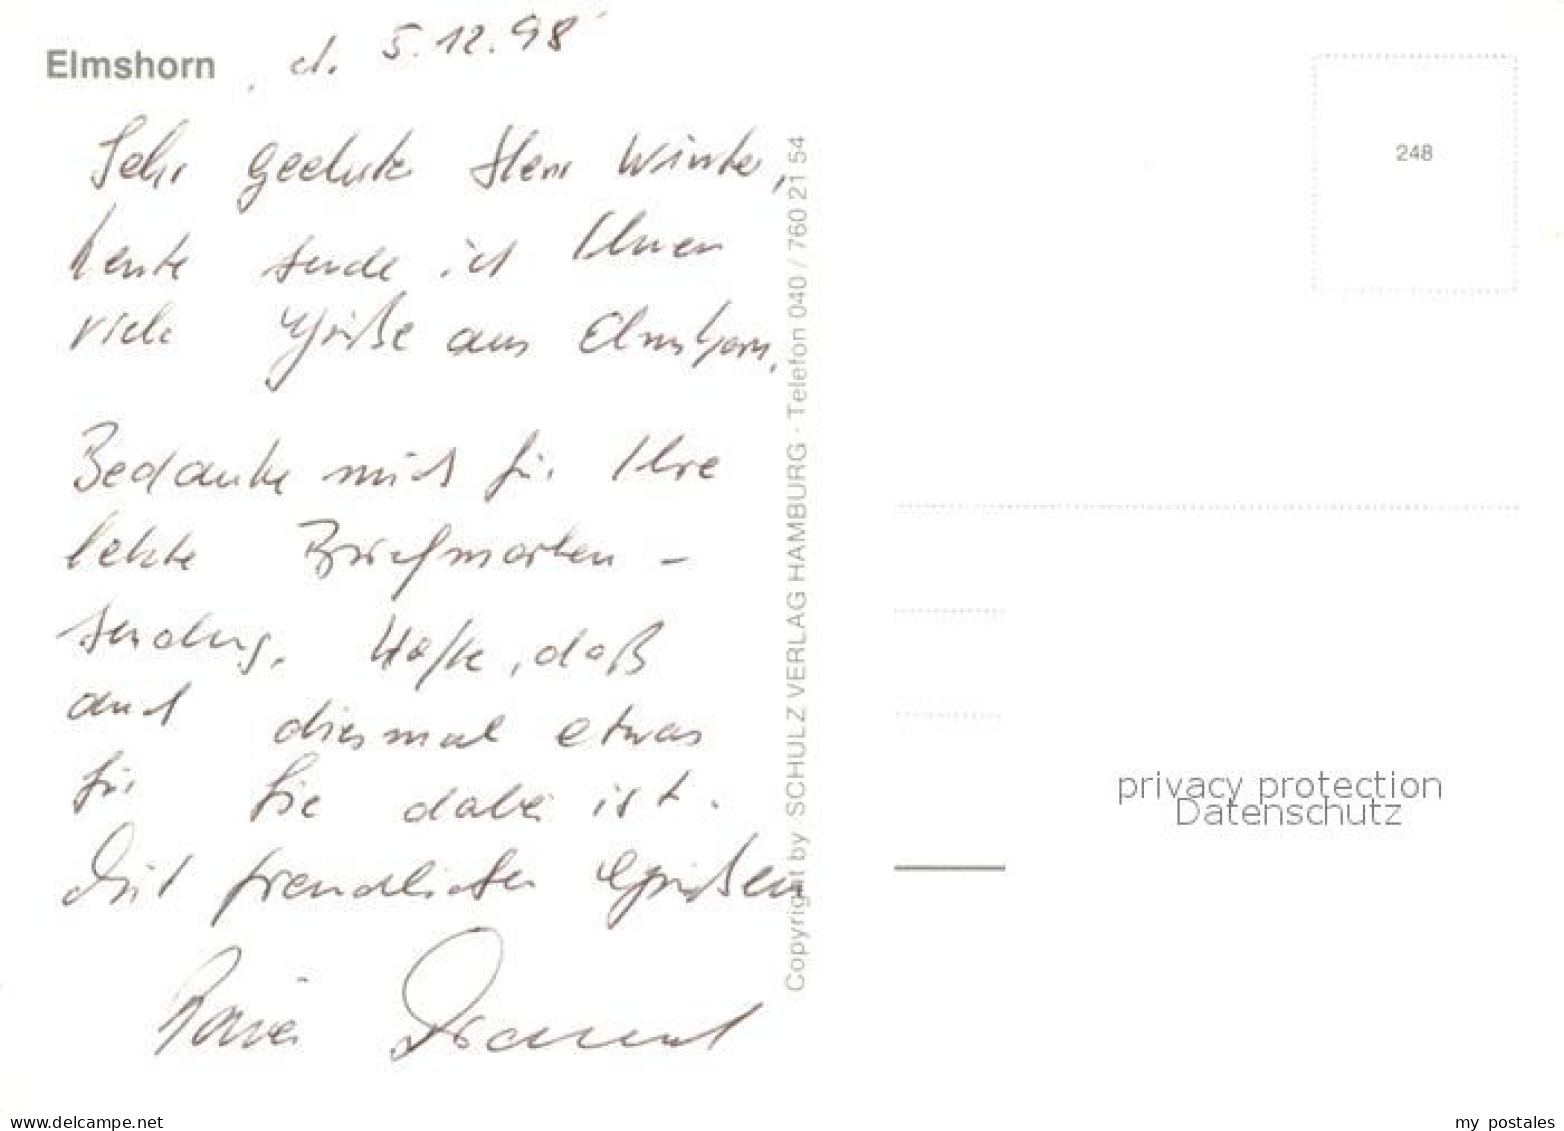 Elmshorn, d. 5.12.98
Sehr geehrter Herr Winter,
heute sende ich Ihnen
viele Grüße aus Elmshorn.
Bedanke mich für Ihre
letzte Briefmarken-
sendung. Hoffe, daß
auch diesmal etwas
für Sie dabei ist.
Mit freundlichen Grüßen
Rainer
Copyright by SCHULZ VERLAG HAMBURG · Telefon 040 / 760 21 54
248
privacy protection
Datenschutz
www.delcampe.net
my postales